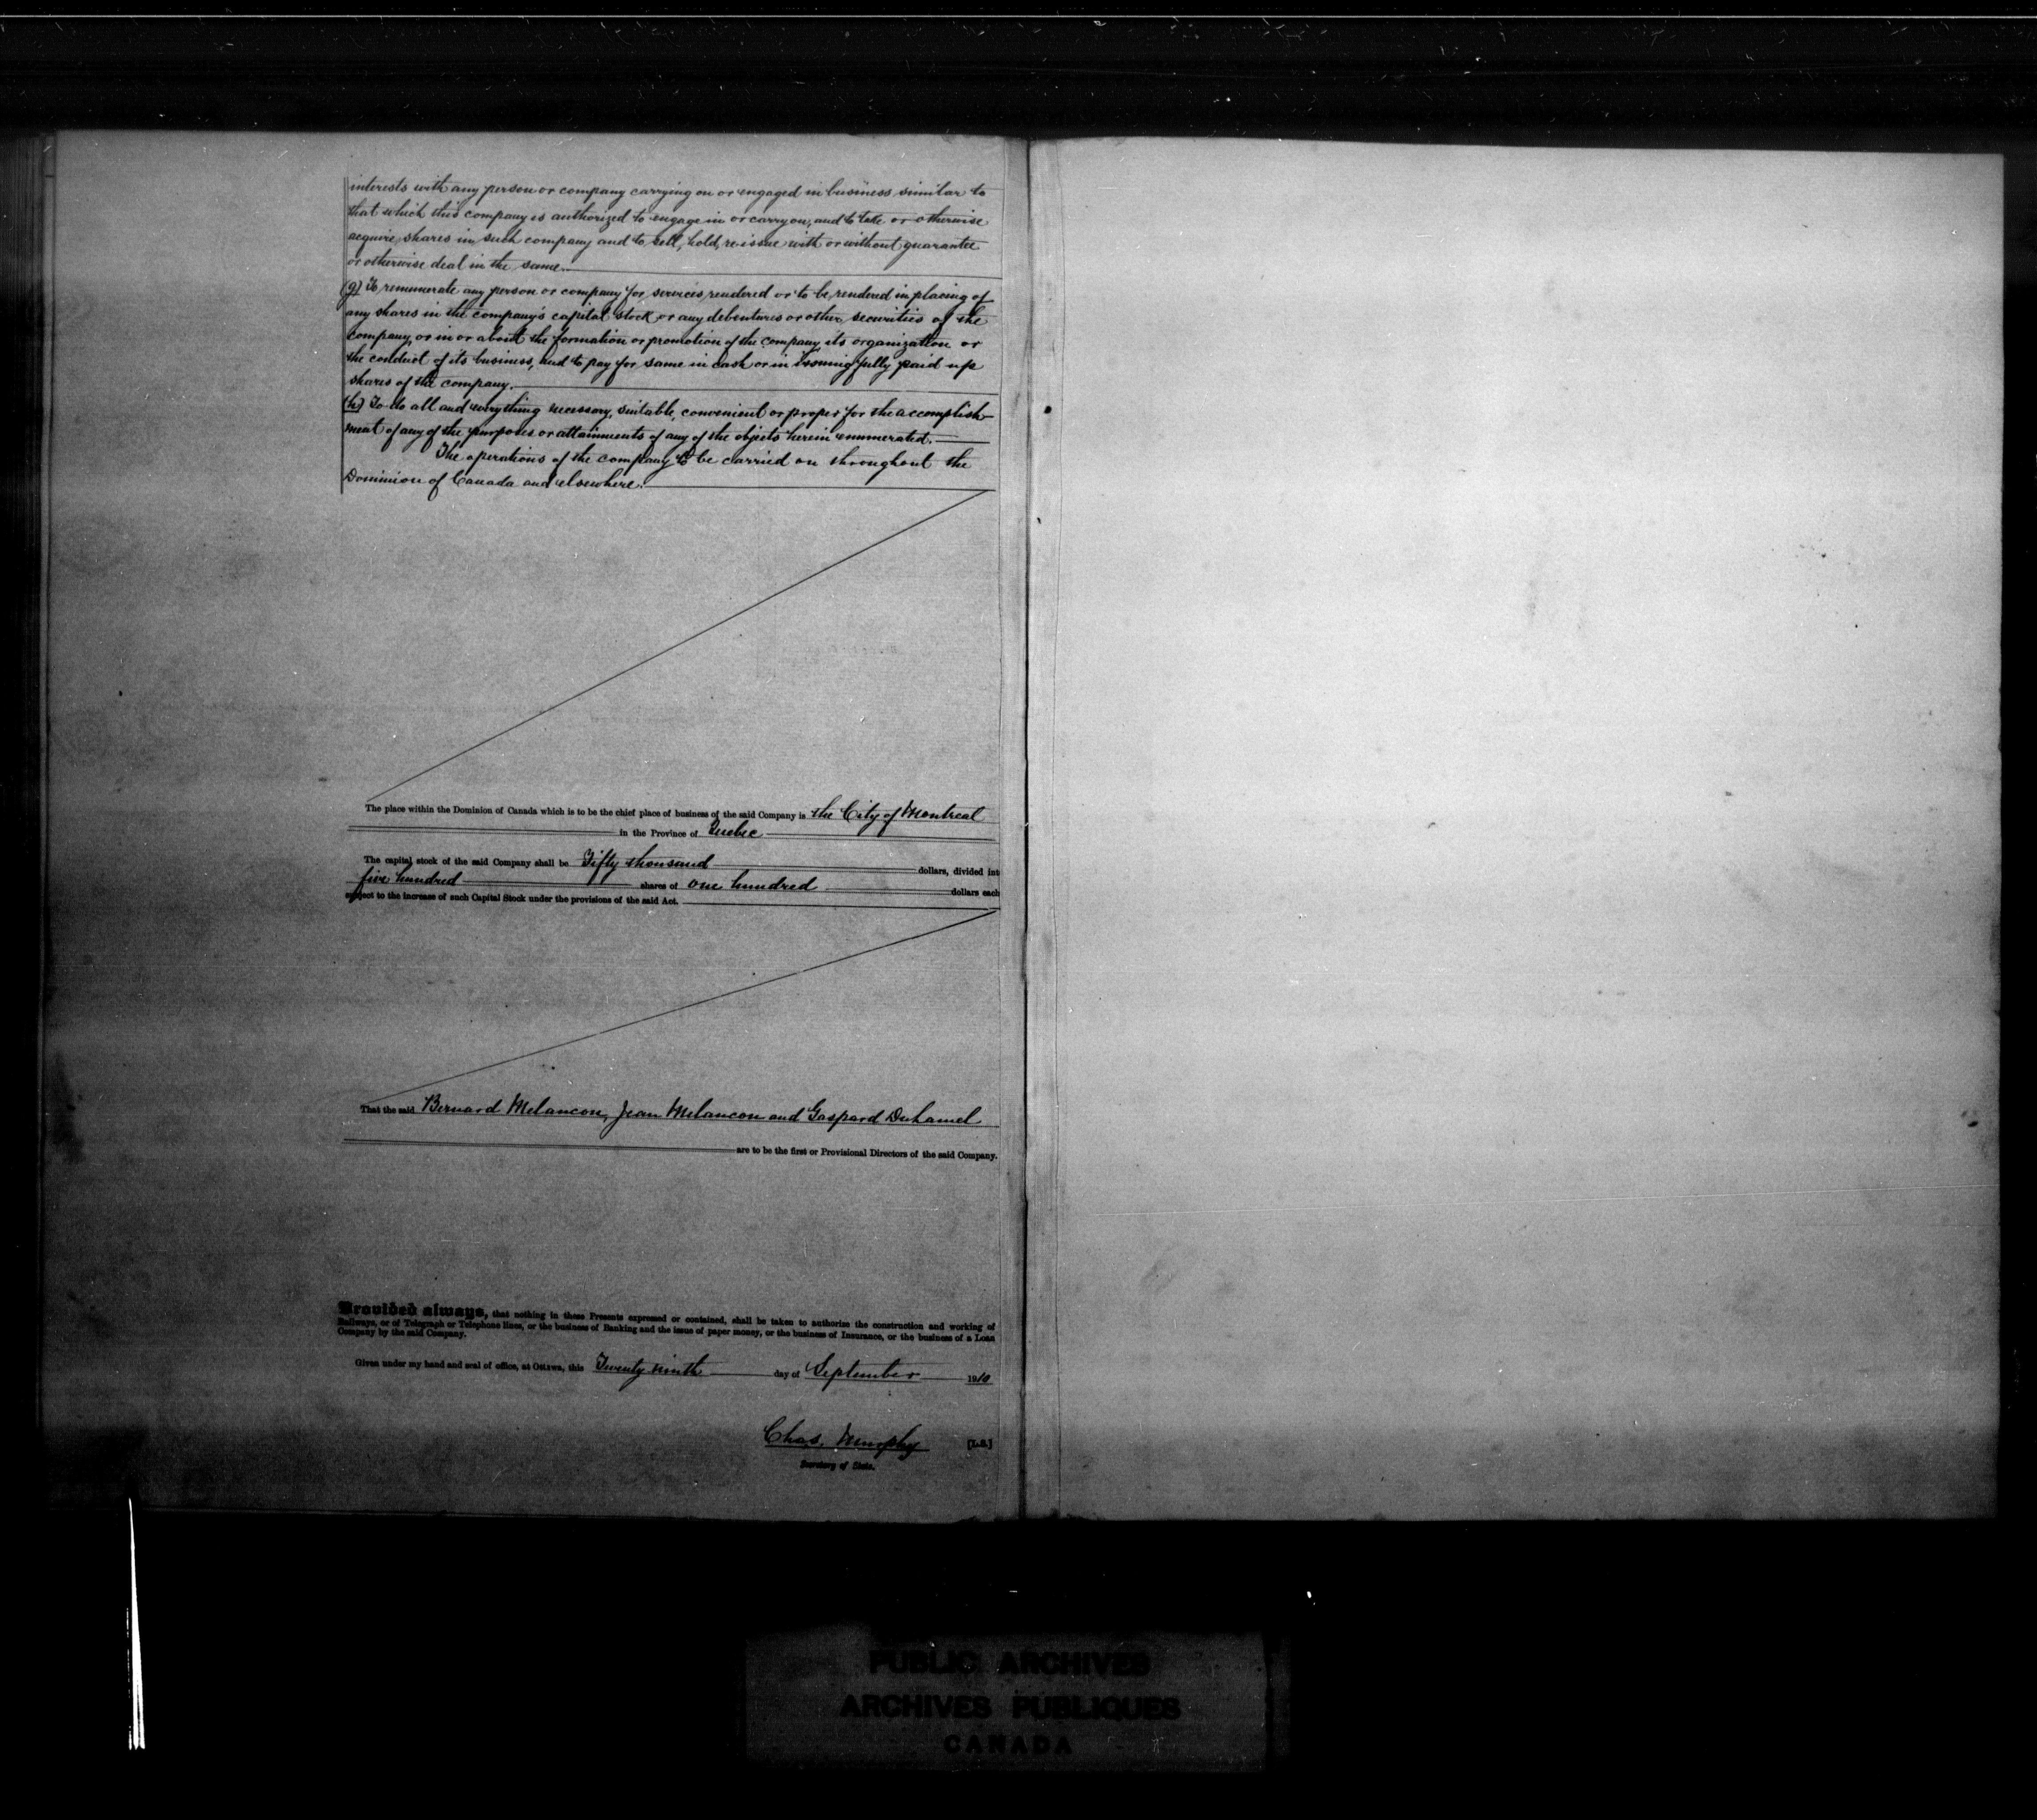 interests with any person or company carrying on or engaged in business similar to
that which this company is authorized to engage in or carry on, and to take or otherwise
acquire shares in such company and to sell, hold, re-issue with or without guarantee
or otherwise deal in the same.
(g) To remunerate any person or company for services rendered or to be rendered in placing of
any shares in the company's capital stock or any debentures or other securities of the
company, or in or about the formation or promotion of the company its organization or
the conduct of its business, and to pay for same in cash or in issuing fully paid up
shares of the company.
(h) To do all and everything necessary, suitable, convenient or proper for the accomplish-
ment of any of the purposes or attainments of any of the objects herein enumerated.
The operations of the company to be carried on throughout the
Dominion of Canada and elsewhere.
The place within the Dominion of Canada which is to be the chief place of business of the said Company is the City of Montreal
in the Province of Quebec
The capital stock of the said Company shall be Fifty thousand dollars, divided int
five hundred shares of one hundred dollars each
subject to the increase of such Capital Stock under the provisions of the said Act.
That the said Bernard Melancon, Jean Melancon and Gaspard Duhamel
are to be the first or Provisional Directors of the said Company.
Provided always, that nothing in these Presents expressed or contained, shall be taken to authorize the construction and working of
Railways, or of Telegraph or Telephone lines, or the business of Banking and the issue of paper money, or the business of Insurance, or the business of a Loan
Company by the said Company.
Given under my hand and seal of office, at Ottawa, this Twenty ninth day of September 1910
Chas. Murphy [L.S.]
Secretary of State.
PUBLIC ARCHIVES
ARCHIVES PUBLIQUES
CANADA